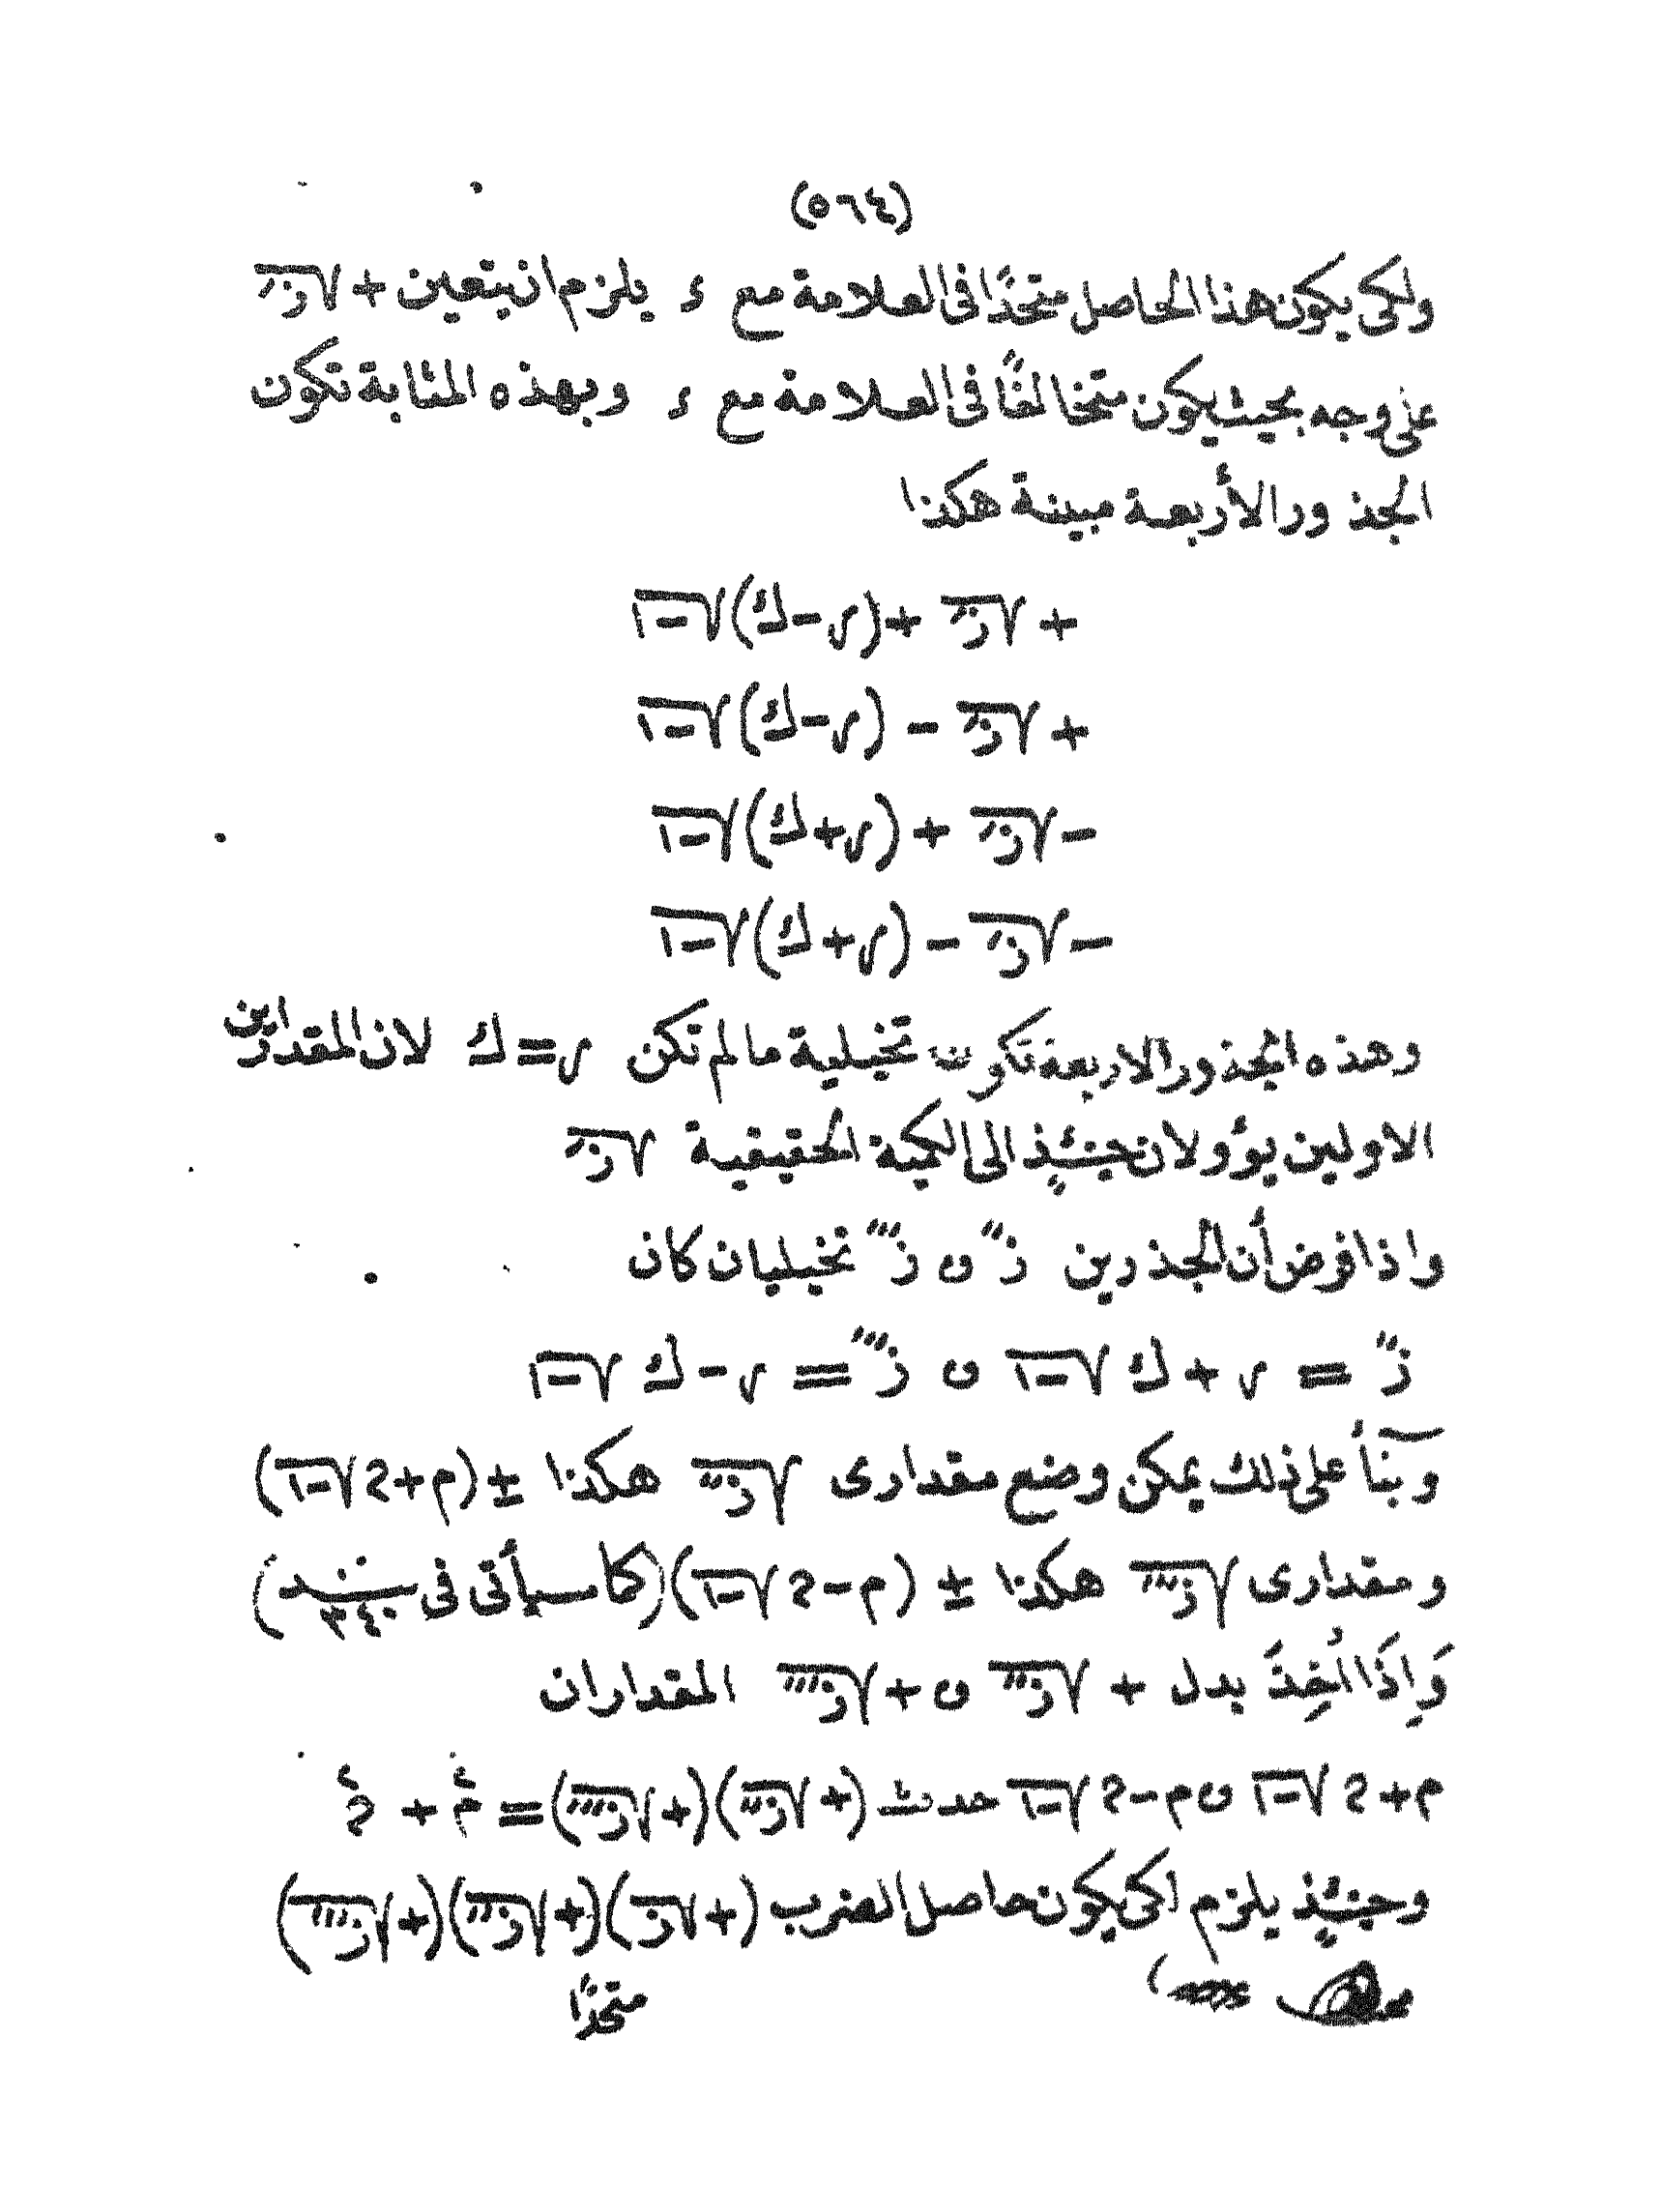 (٥٦٤)
ولكى يكون هذا الحاصل متحدًا فى العلامة مع ء يلزم ان يتعين + √زَ
على وجه بحيث يكون متخالفًا فى العلامة مع ء وبهذه المثابة تكون
الجذور الأربعة مبينة هكذا
+ √زَ + (س-ك)√-١
+ √زَ - (س-ك)√-١
-√زَ + (س+ك)√-١
-√زَ - (س+ك)√-١
وهذه الجذور الاربعة تكون تخيلية ما لم تكن س=ك لان المقدارين
الاولين يؤولان حينئذٍ الى الكمية الحقيقية √زَ
واذا فرض أن الجذرين زً و زًَ تخيليان كان
زً = س + ك √-١ و زًَ = س - ك √-١
وبنآأ على ذلك يمكن وضع مقدارى √زً هكذا ± (م+2√-١)
ومقدارى √زًَ هكذا ± (م-2√-١)(كما سيأتى فى بند ٣٤٠)
وَاِذَا اُخِذَ بدل + √زً و+√زًَ المقداران
م+2√-١ وم-2√-١ حدث (+√زً)(+√زًَ)=مٔ + 2ٔ
وحينئذٍ يلزم لكى يكون حاصل الضرب (+√زَ)(+√زً)(+√زًَ)
متحدًا